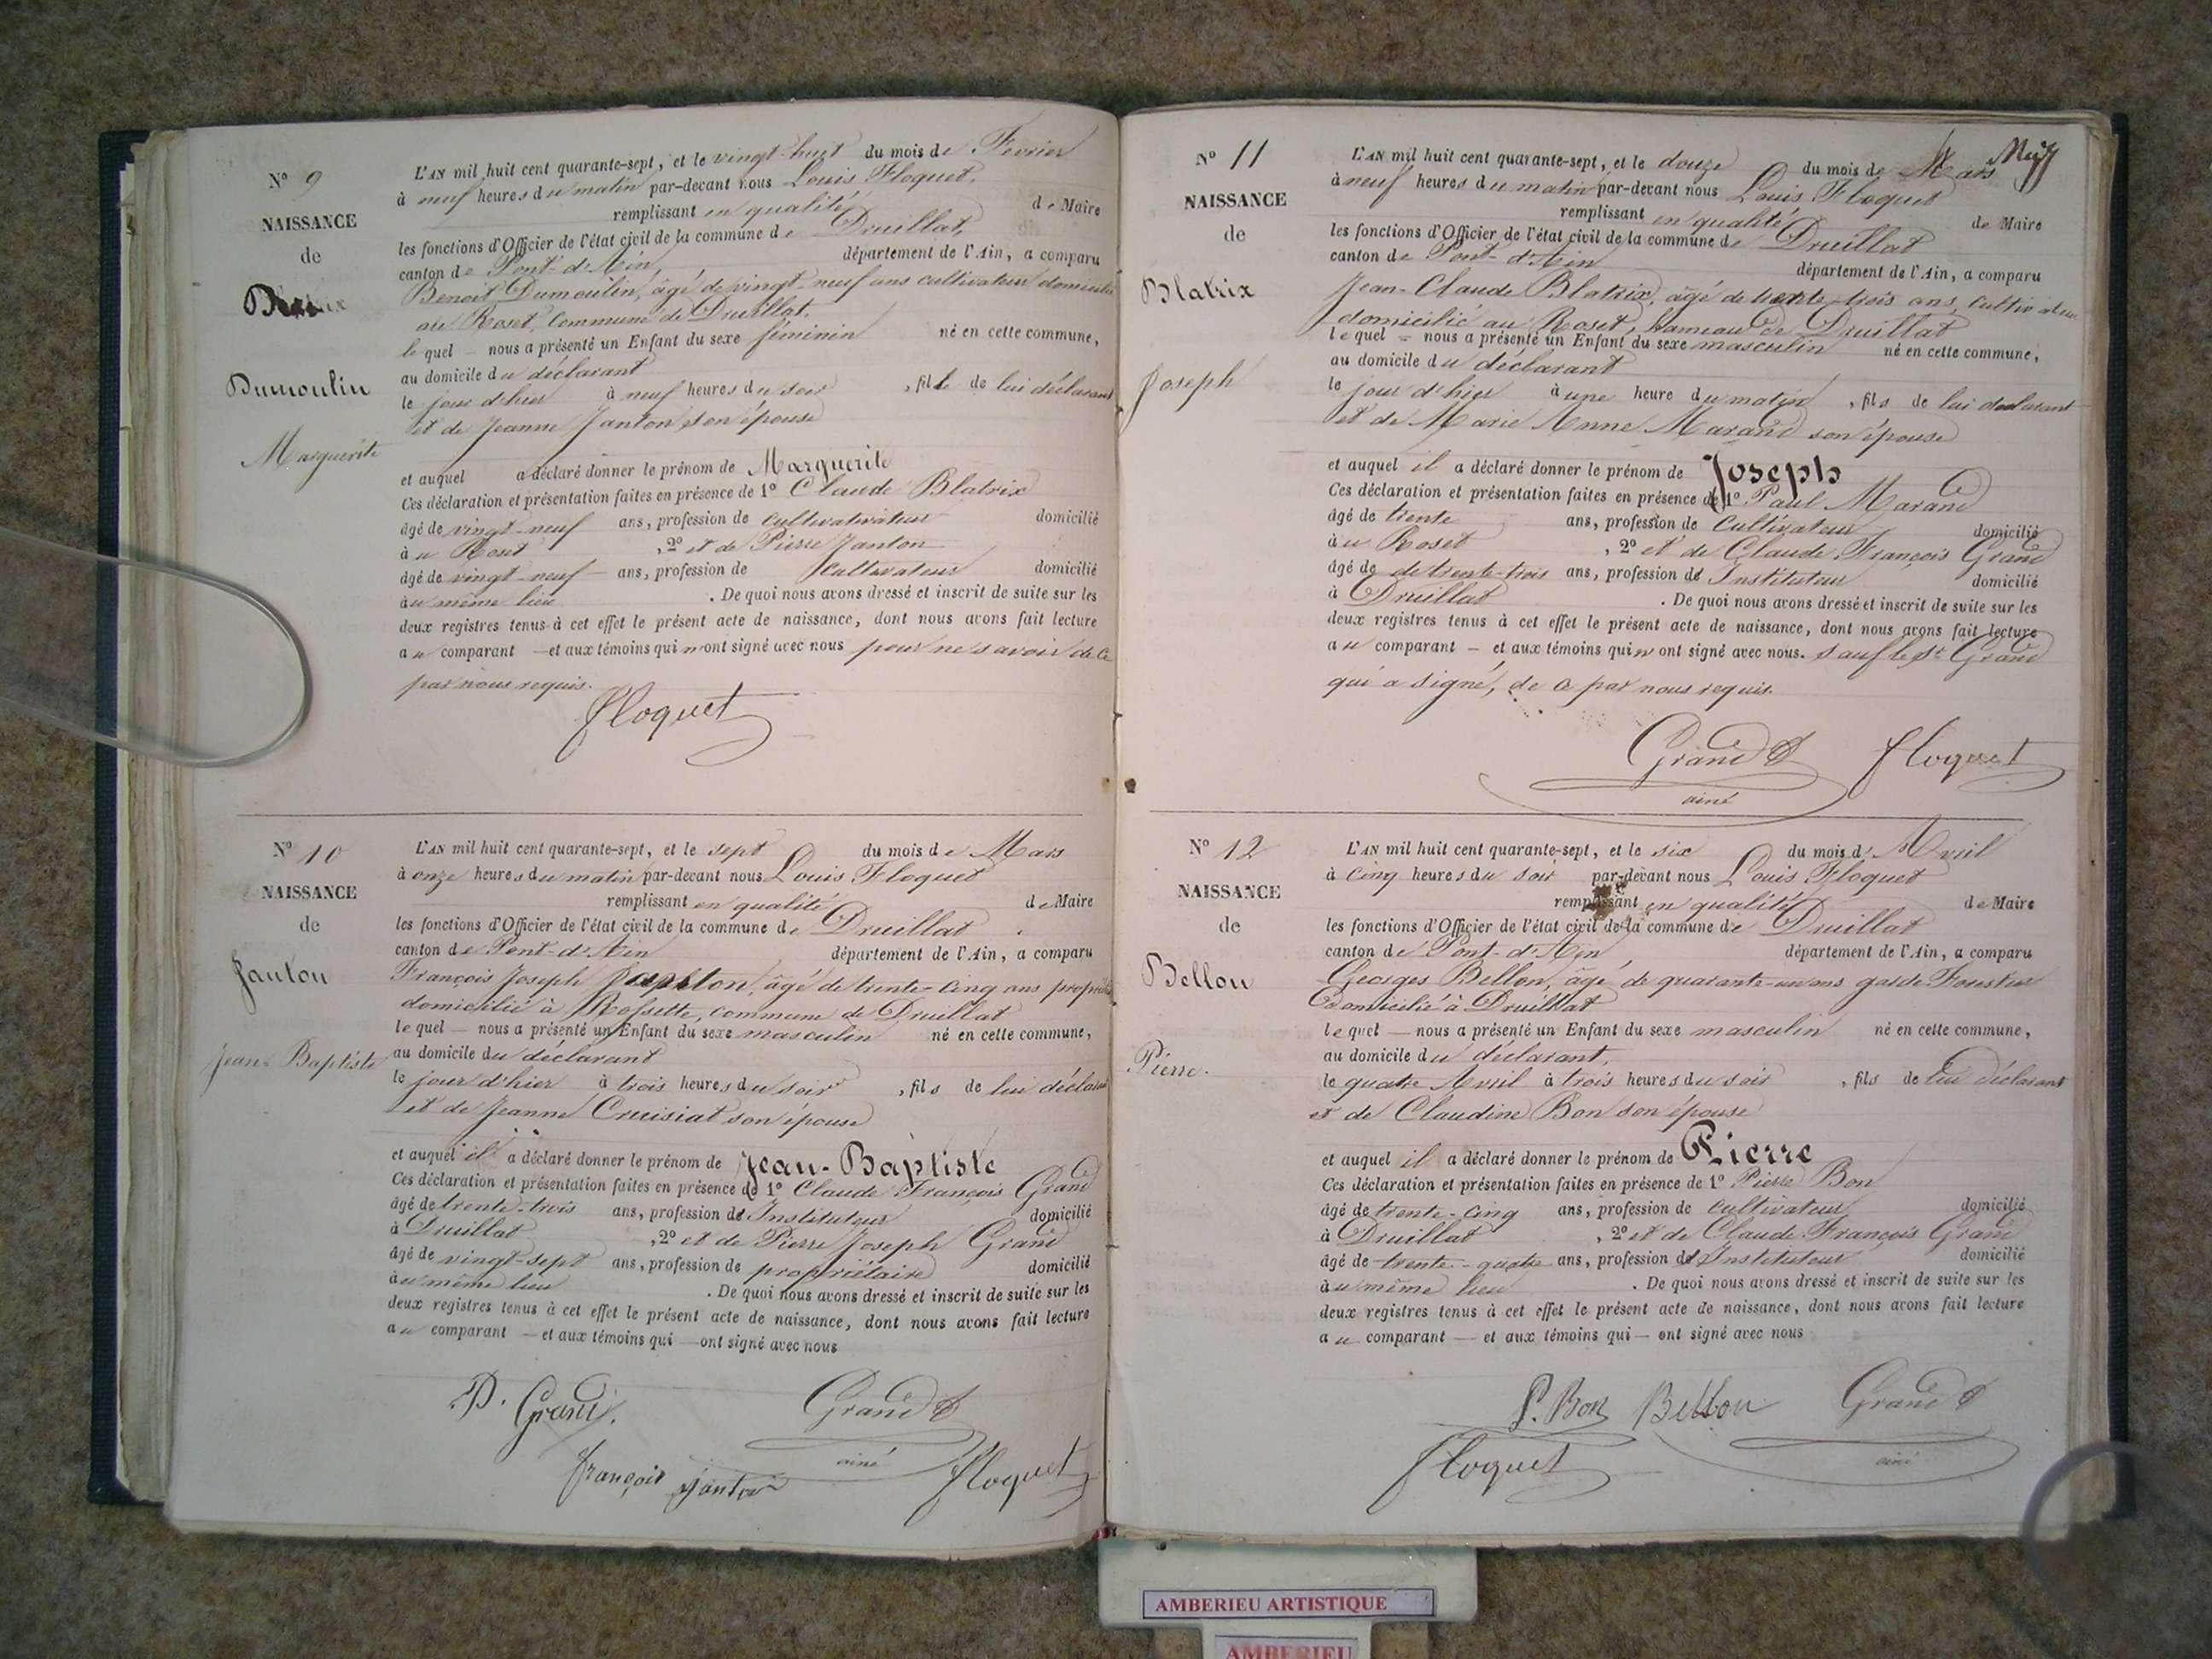 N° 9
NAISSANCE
de
Dumoulin
Marguerite
L'AN mil huit cent quarante-sept, et le vingt-huit du mois de Fevrier
à neuf heures du matin par-devant nous Louis Floquet,
remplissant en qualité de Maire
les fonctions d'Officier de l'état civil de la commune de Druillat,
canton de Pont-d'Ain, département de l'Ain, a comparu
Benoit Dumoulin, âgé de vingt-neuf ans cultivateur domicilié
au Roset, commune de Druillat.
lequel — nous a présenté un Enfant du sexe féminin né en cette commune,
au domicile du déclarant
le jour d'hier à neuf heures du soir, fille de lui déclarant
et de Jeanne Janton son épouse
et auquel a déclaré donner le prénom de Marguerite
Ces déclaration et présentation faites en présence de 1° Claude Blatrix
âgé de vingt-neuf ans, profession de cultivativateur domicilié
au, 2° et de Pierre Janton
âgé de vingt-neuf — ans, profession de cultivateur domicilié
au même lieu. De quoi nous avons dressé et inscrit de suite sur les
deux registres tenus à cet effet le présent acte de naissance, dont nous avons fait lecture
au comparant — et aux témoins qui n'ont signé avec nous pour ne savoir de ce
par nous requis.
Floquet
N° 10
NAISSANCE
de
Janton
Jean-Baptiste
L'AN mil huit cent quarante-sept, et le sept du mois de Mars
à onze heures du matin par-devant nous Louis Floquet
remplissant en qualité de Maire
les fonctions d'Officier de l'état civil de la commune de Druillat
canton de Pont-d'Ain département de l'Ain, a comparu
François Joseph âgé de trente-cinq ans
domicilié à Rossette, commune de Druillat
lequel — nous a présenté un Enfant du sexe masculin né en cette commune,
au domicile du déclarant
le jour d'hier à trois heures du soir, fils de lui déclarant
et de Jeanne Cruisiat son épouse
et auquel il a déclaré donner le prénom de Jean-Baptiste
Ces déclaration et présentation faites en présence de 1° Claude François Grand
âgé de trente-trois ans, profession d'Instituteur domicilié
à Druillat, 2° et de Pierre Joseph Grand
âgé de vingt-sept ans, profession de propriétaire domicilié
au même lieu. De quoi nous avons dressé et inscrit de suite sur les
deux registres tenus à cet effet le présent acte de naissance, dont nous avons fait lecture
au comparant — et aux témoins qui — ont signé avec nous
P. Grand. Grand
ainé
françois janton Floquet
N° 11
NAISSANCE
de
Blatrix
Joseph
L'AN mil huit cent quarante-sept, et le douze du mois de Mars
à neuf heures du matin par-devant nous Louis Floquet
remplissant en qualité de Maire
les fonctions d'Officier de l'état civil de la commune de Druillat
canton de Pont-d'Ain département de l'Ain, a comparu
Jean-Claude Blatrix, âgé de trente-trois ans, cultivateur
domicilié au Roset, hameau de Druillat
lequel — nous a présenté un Enfant du sexe masculin né en cette commune,
au domicile du déclarant
le jour d'hier à une heure du matin, fils de lui déclarant
et de Marie Anne Marand son épouse
et auquel il a déclaré donner le prénom de Joseph
Ces déclaration et présentation faites en présence de 1° Paul Marand
âgé de trente ans, profession de cultivateur domicilié
au Roset, 2° et de Claude François Grand
âgé de de trente-trois ans, profession d'Instituteur domicilié
à Druillat. De quoi nous avons dressé et inscrit de suite sur les
deux registres tenus à cet effet le présent acte de naissance, dont nous avons fait lecture
au comparant — et aux témoins qui n'ont signé avec nous. sauf le Sr Grand
qui a signé, de ce par nous requis.
Grand Floquet
ainé
N° 12
NAISSANCE
de
Bellon
Pierre.
L'AN mil huit cent quarante-sept, et le six du mois d'Avril
à cinq heures du soir par-devant nous Louis Floquet
remplissant en qualité de Maire
les fonctions d'Officier de l'état civil de la commune de Druillat
canton de Pont-d'Ain département de l'Ain, a comparu
Georges Bellon, âgé de quarante-un ans garde Forestier
Domicilié à Druillat
lequel — nous a présenté un Enfant du sexe masculin né en cette commune,
au domicile du déclarant,
le quatre Avril à trois heures du soir, fils de lui déclarant
et de Claudine Bon son épouse
et auquel il a déclaré donner le prénom de Pierre
Ces déclaration et présentation faites en présence de 1° Pierre Bon
âgé de trente-cinq ans, profession de cultivateur domicilié
à Druillat, 2° et de Claude François Grand
âgé de trente-quatre ans, profession d'Instituteur domicilié
au même lieu. De quoi nous avons dressé et inscrit de suite sur les
deux registres tenus à cet effet le présent acte de naissance, dont nous avons fait lecture
au comparant — et aux témoins qui — ont signé avec nous
P. Bon Bellon Grand
ainé
Floquet
AMBERIEU ARTISTIQUE
AMBERIEU